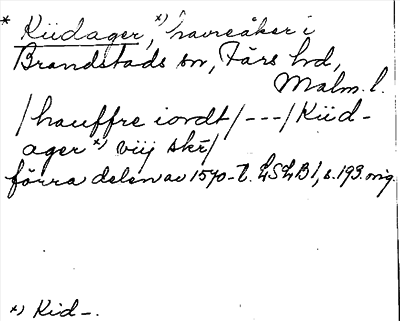 * Küdager, *) havreåker i
Brandstads sn, Färs hd,
Malm. l.
/hauffre iordt/---/Küd-
ager *) viij skr/
förra delen av 1570-t. LSLB 1, s. 193. orig.
*) Kid-.